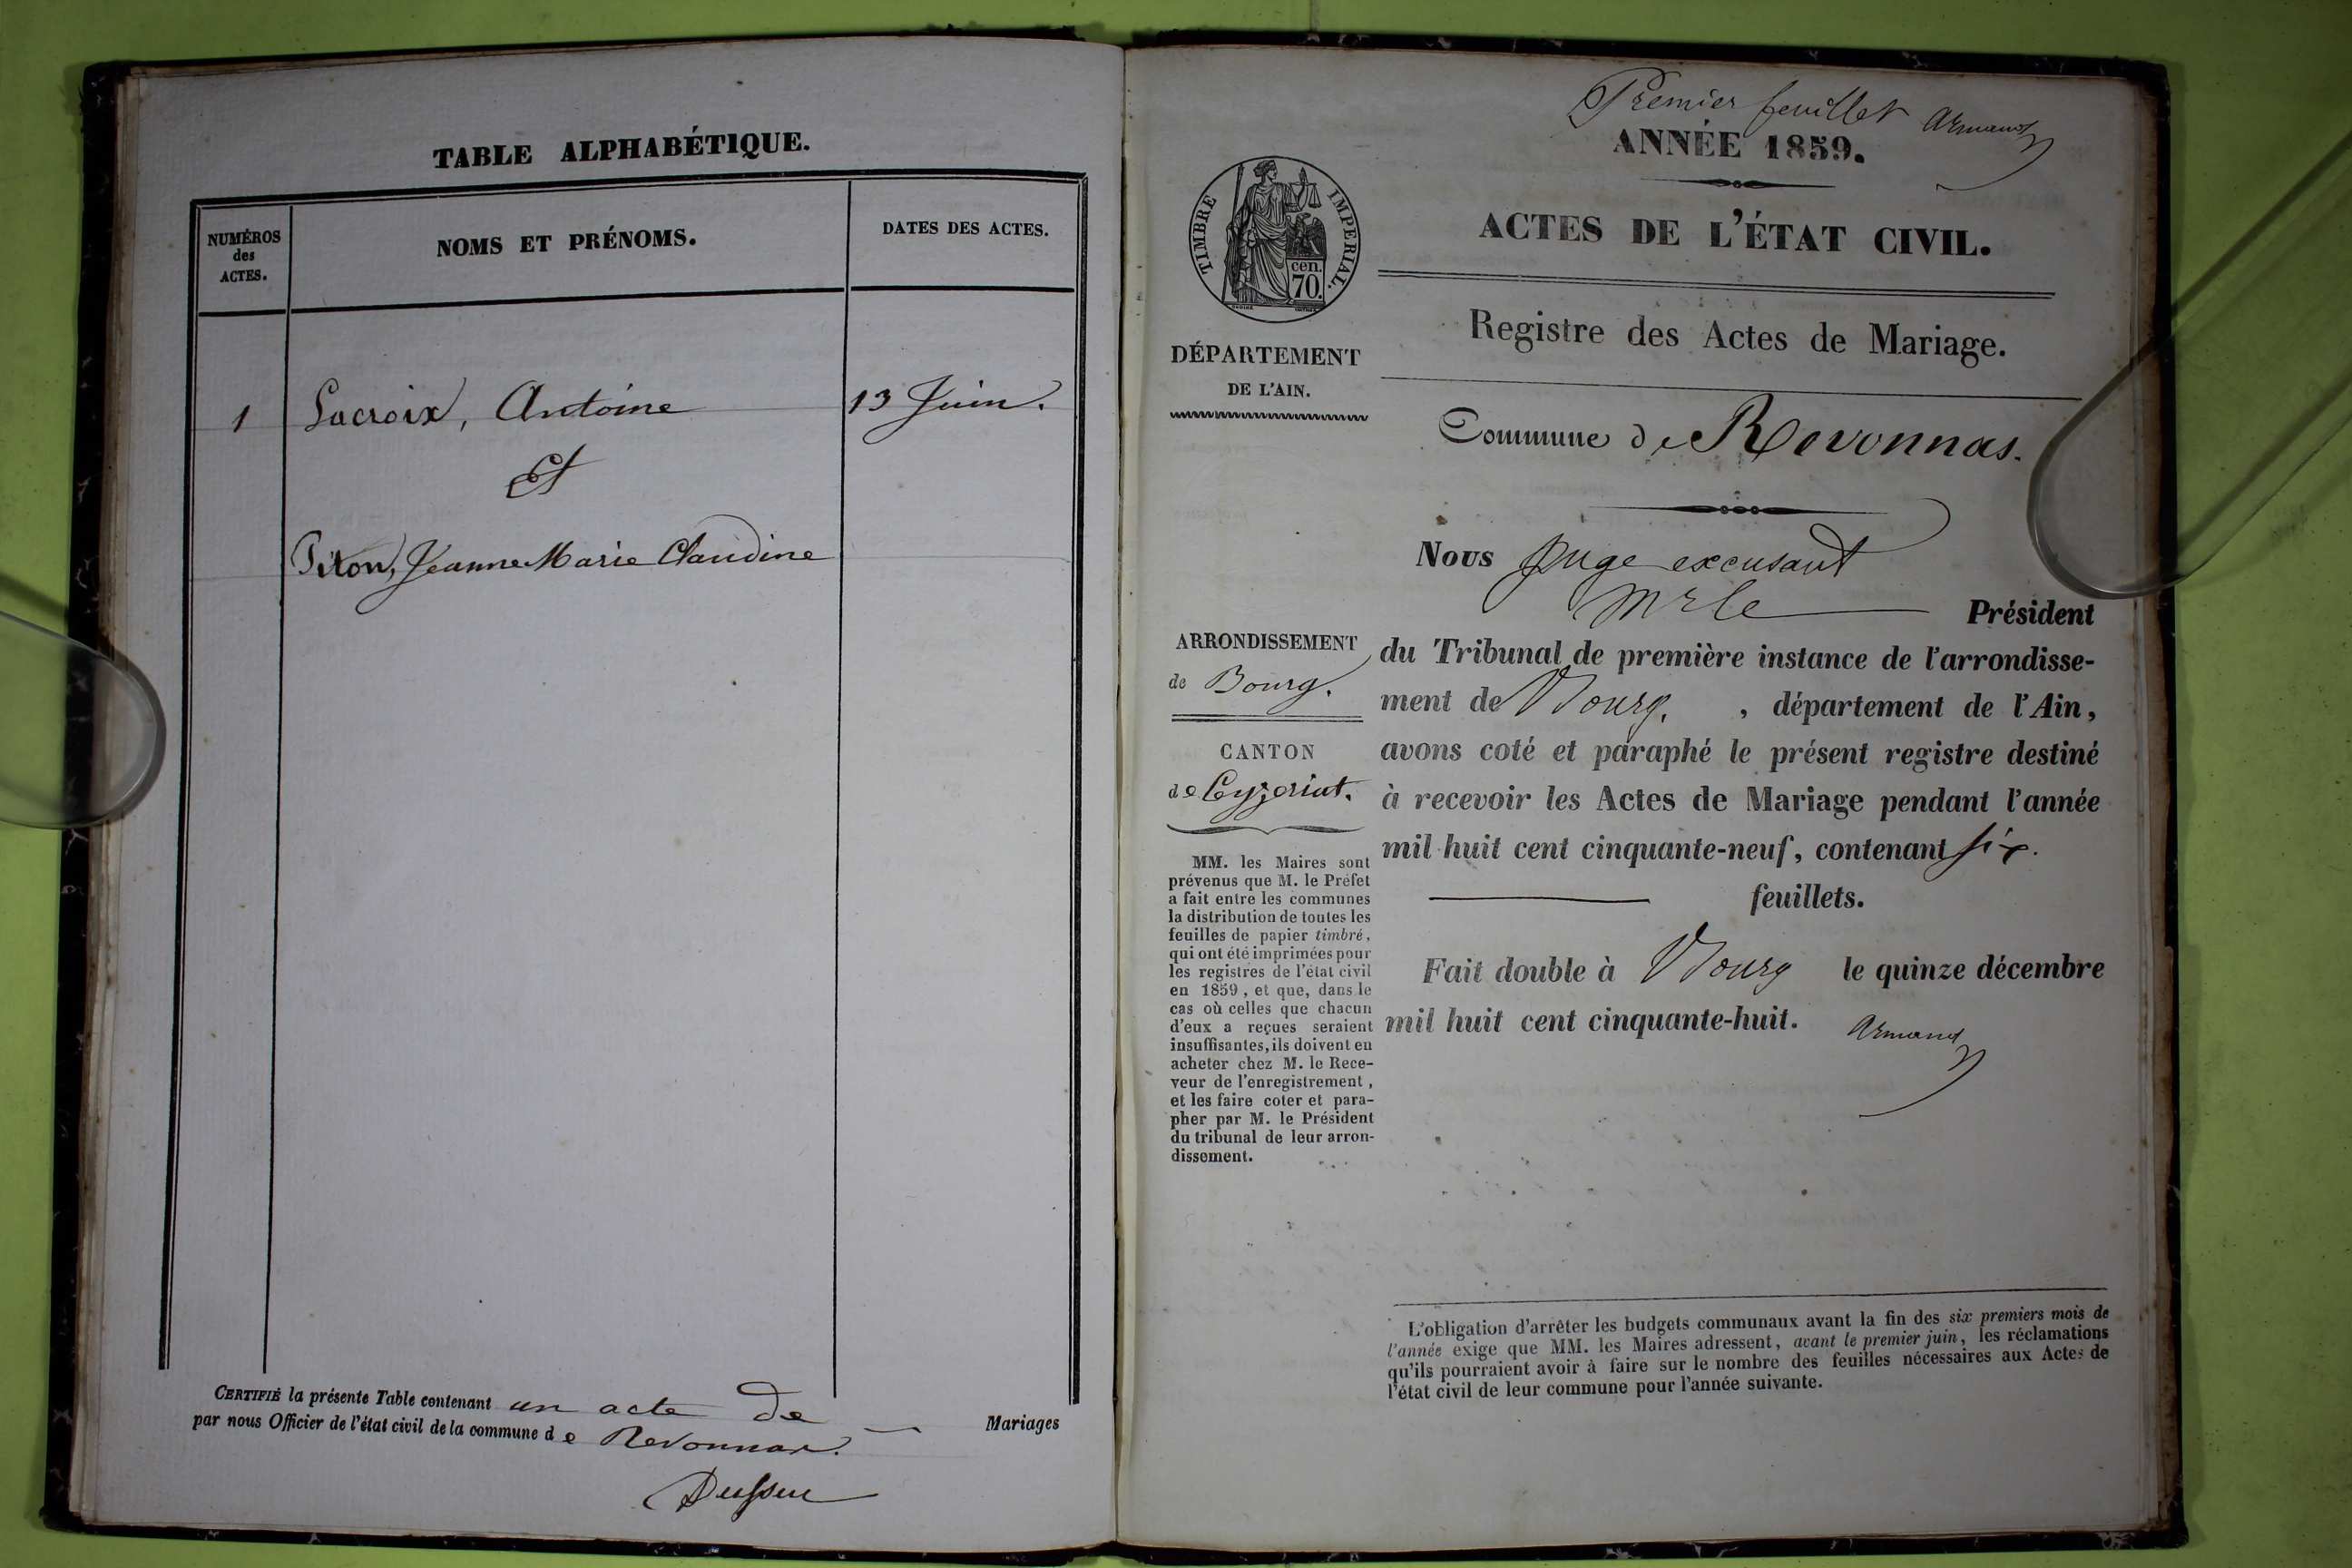 TABLE ALPHABÉTIQUE.
NUMÉROS
des
ACTES.
NOMS ET PRÉNOMS.
DATES DES ACTES.
1
Lacroix, Antoine
13 Juin.
Et
Piton, Jeanne Marie Claudine
CERTIFIÉ la présente Table contenant un acte de Mariages
par nous Officier de l'état civil de la commune de Revonnas.
Premier feuillet Armand
ANNÉE 1859.
TIMBRE IMPERIAL.
cen.
70.
ACTES DE L'ÉTAT CIVIL.
Registre des Actes de Mariage.
DÉPARTEMENT
DE L'AIN.
Commune de Revonnas.
Nous Juge excusant
Mr le Président
du Tribunal de première instance de l'arrondisse-
ment de Bourg. , département de l'Ain,
avons coté et paraphé le présent registre destiné
à recevoir les Actes de Mariage pendant l'année
mil huit cent cinquante-neuf, contenant six.
feuillets.
Fait double à Bourg le quinze décembre
mil huit cent cinquante-huit.
Armand
ARRONDISSEMENT
de Bourg.
CANTON
de Ceyzeriat.
MM. les Maires sont
prévenus que M. le Préfet
a fait entre les communes
la distribution de toutes les
feuilles de papier timbré,
qui ont été imprimées pour
les registres de l'état civil
en 1859, et que, dans le
cas où celles que chacun
d'eux a reçues seraient
insuffisantes, ils doivent en
acheter chez M. le Rece-
veur de l'enregistrement,
et les faire coter et para-
pher par M. le Président
du tribunal de leur arron-
dissement.
L'obligation d'arrêter les budgets communaux avant la fin des six premiers mois de
l'année exige que MM. les Maires adressent, avant le premier juin, les réclamations
qu'ils pourraient avoir à faire sur le nombre des feuilles nécessaires aux Actes de
l'état civil de leur commune pour l'année suivante.